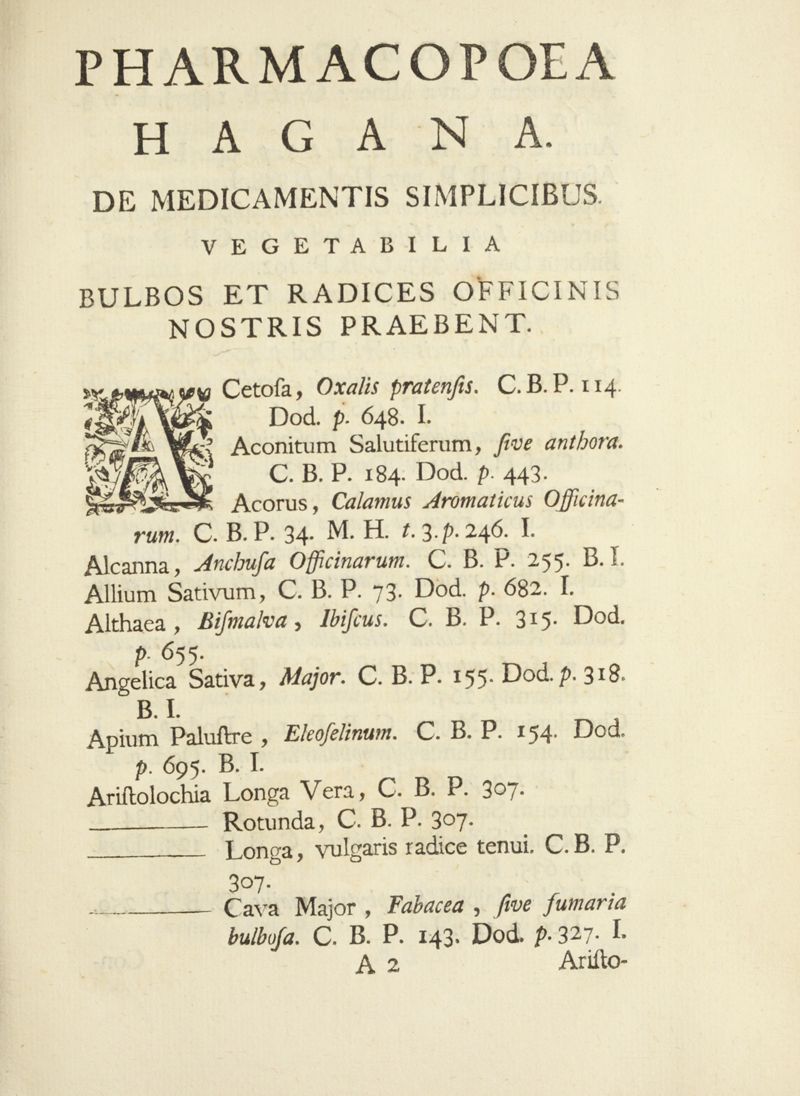 PHARMACOPOEA
HAGANA.
DE MEDICAMENTIS SIMPLICIBUS.
VEGETABILIA
BULBOS ET RADICES OFFICINIS
NOSTRIS PRAEBENT.
ACetoſa, Oxalis pratenſis. C. B. P. 114.
Dod. p. 648. I.
Aconitum Salutiferum, ſive anthora.
C. B. P. 184. Dod. p. 443.
Acorus, Calamus Aromaticus Officina-
rum. C. B. P. 34. M. H. t. 3. p. 246. I.
Alcanna, Anchuſa Officinarum. C. B. P. 255. B. I.
Allium Sativum, C. B. P. 73. Dod. p. 682. I.
Althaea, Biſmalva, Ibiſcus. C. B. P. 315. Dod.
p. 655.
Angelica Sativa, Major. C. B. P. 155. Dod. p. 318.
B. I.
Apium Paluſtre, Eleoſelinum. C. B. P. 154. Dod.
p. 695. B. I.
Ariſtolochia Longa Vera, C. B. P. 307.
——— Rotunda, C. B. P. 307.
——— Longa, vulgaris radice tenui. C. B. P.
307.
——— Cava Major, Fabacea, ſive fumaria
bulboſa. C. B. P. 143. Dod. p. 327. I.
A 2 Ariſto-